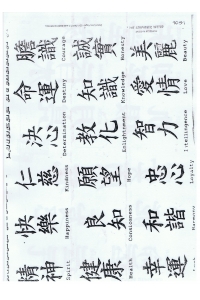 膽識 Courage
誠實 Honesty
美麗 Beauty
命運 Destiny
知識 Knowledge
愛情 Love
決心 Determination
教化 Enlightenment
智力
仁慈 Kindness
願望 Hope
忠心 Loyalty
快樂 Happiness
良知
和諧 Harmony
精神 Spirit
健康 Health
幸運